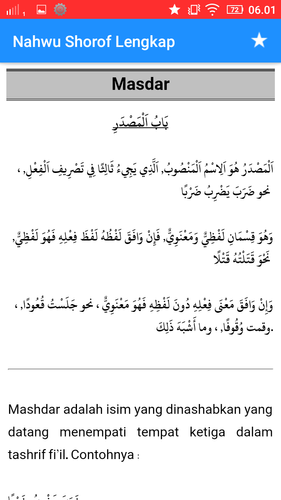 72 06.01
Nahwu Shorof Lengkap
Masdar
بَابُ اَلْمَصْدَرِ
اَلْمَصْدَرُ هُوَ اَلِاسْمُ اَلْمَنْصُوبُ, اَلَّذِي يَجِيءُ ثَالِثًا فِي تَصْرِيفِ اَلْفِعْلِ, ،
نحو ضَرَبَ يَضْرِبُ ضَرْبًا
وَهُوَ قِسْمَانِ لَفْظِيٌّ وَمَعْنَوِيٌّ, فَإِنْ وَافَقَ لَفْظُهُ لَفْظَ فِعْلِهِ فَهُوَ لَفْظِيٌّ,
نَحْوَ قَتَلْتُهُ قَتْلًا
وَإِنْ وَافَقَ مَعْنَى فِعْلِهِ دُونَ لَفْظِهِ فَهُوَ مَعْنَوِيٌّ ، نحو جَلَسْتُ قُعُودًا, ،
.وقمت وُقُوفًا, ، وما أَشْبَهَ ذَلِكَ
Mashdar adalah isim yang dinashabkan yang
datang menempati tempat ketiga dalam
tashrif fi'il. Contohnya :